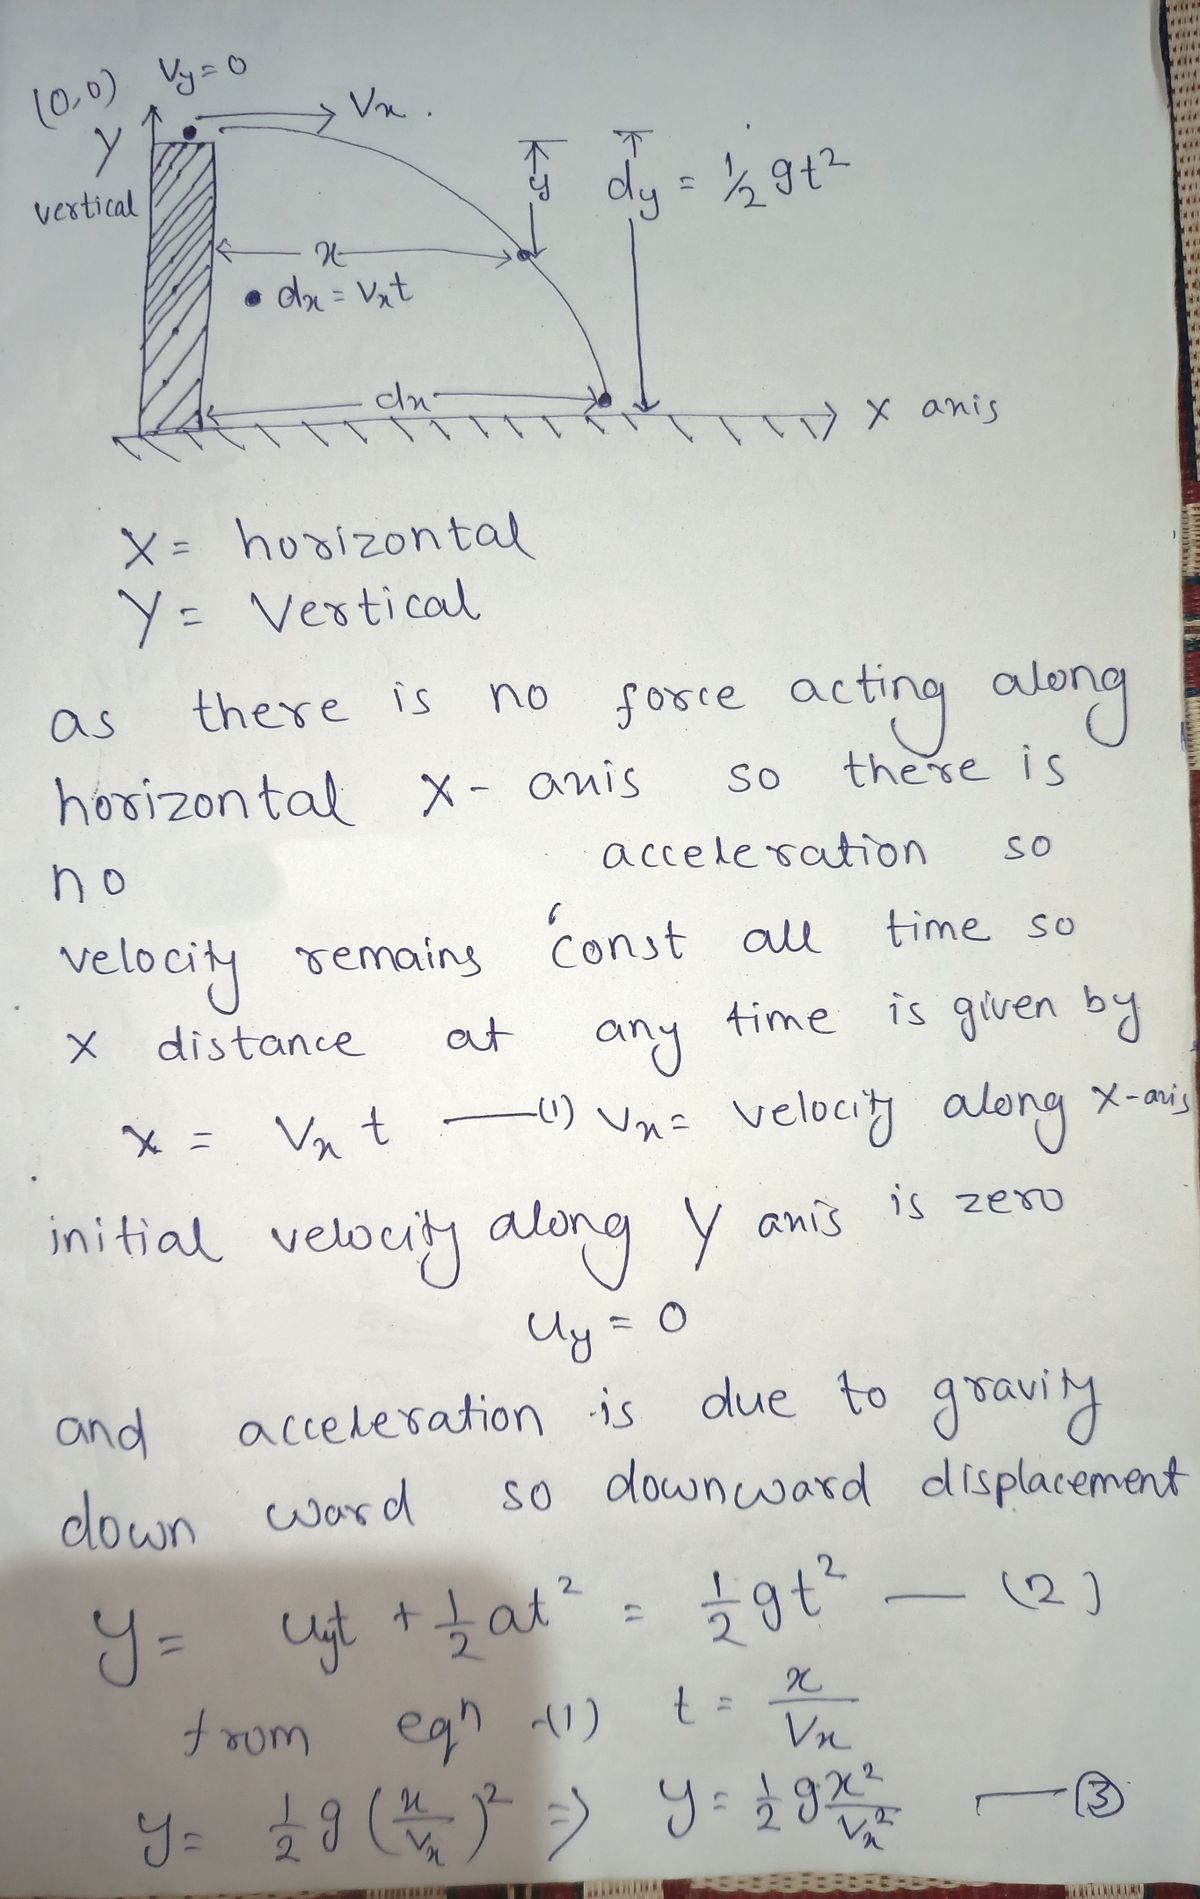 (0,0) Vy=0
Vx.
Y
vertical
y
dy = 1/2 gt²
x
• dx = Vxt
dx
X axis
X = horizontal
Y = Vertical
as there is no force acting along
horizontal X- axis so there is
no acceleration so
velocity remains const all time so
X distance at any time is given by
x = Vx t —(1) Vx = velocity along X-axis
initial velocity along Y axis is zero
uy = 0
and acceleration is due to gravity
down ward so downward displacement
y = uyt + 1/2 at² = 1/2 gt² — (2)
from eqn -(1) t = x/Vx
y = 1/2 g (x/Vx)² => y = 1/2 g x²/Vx² — ③